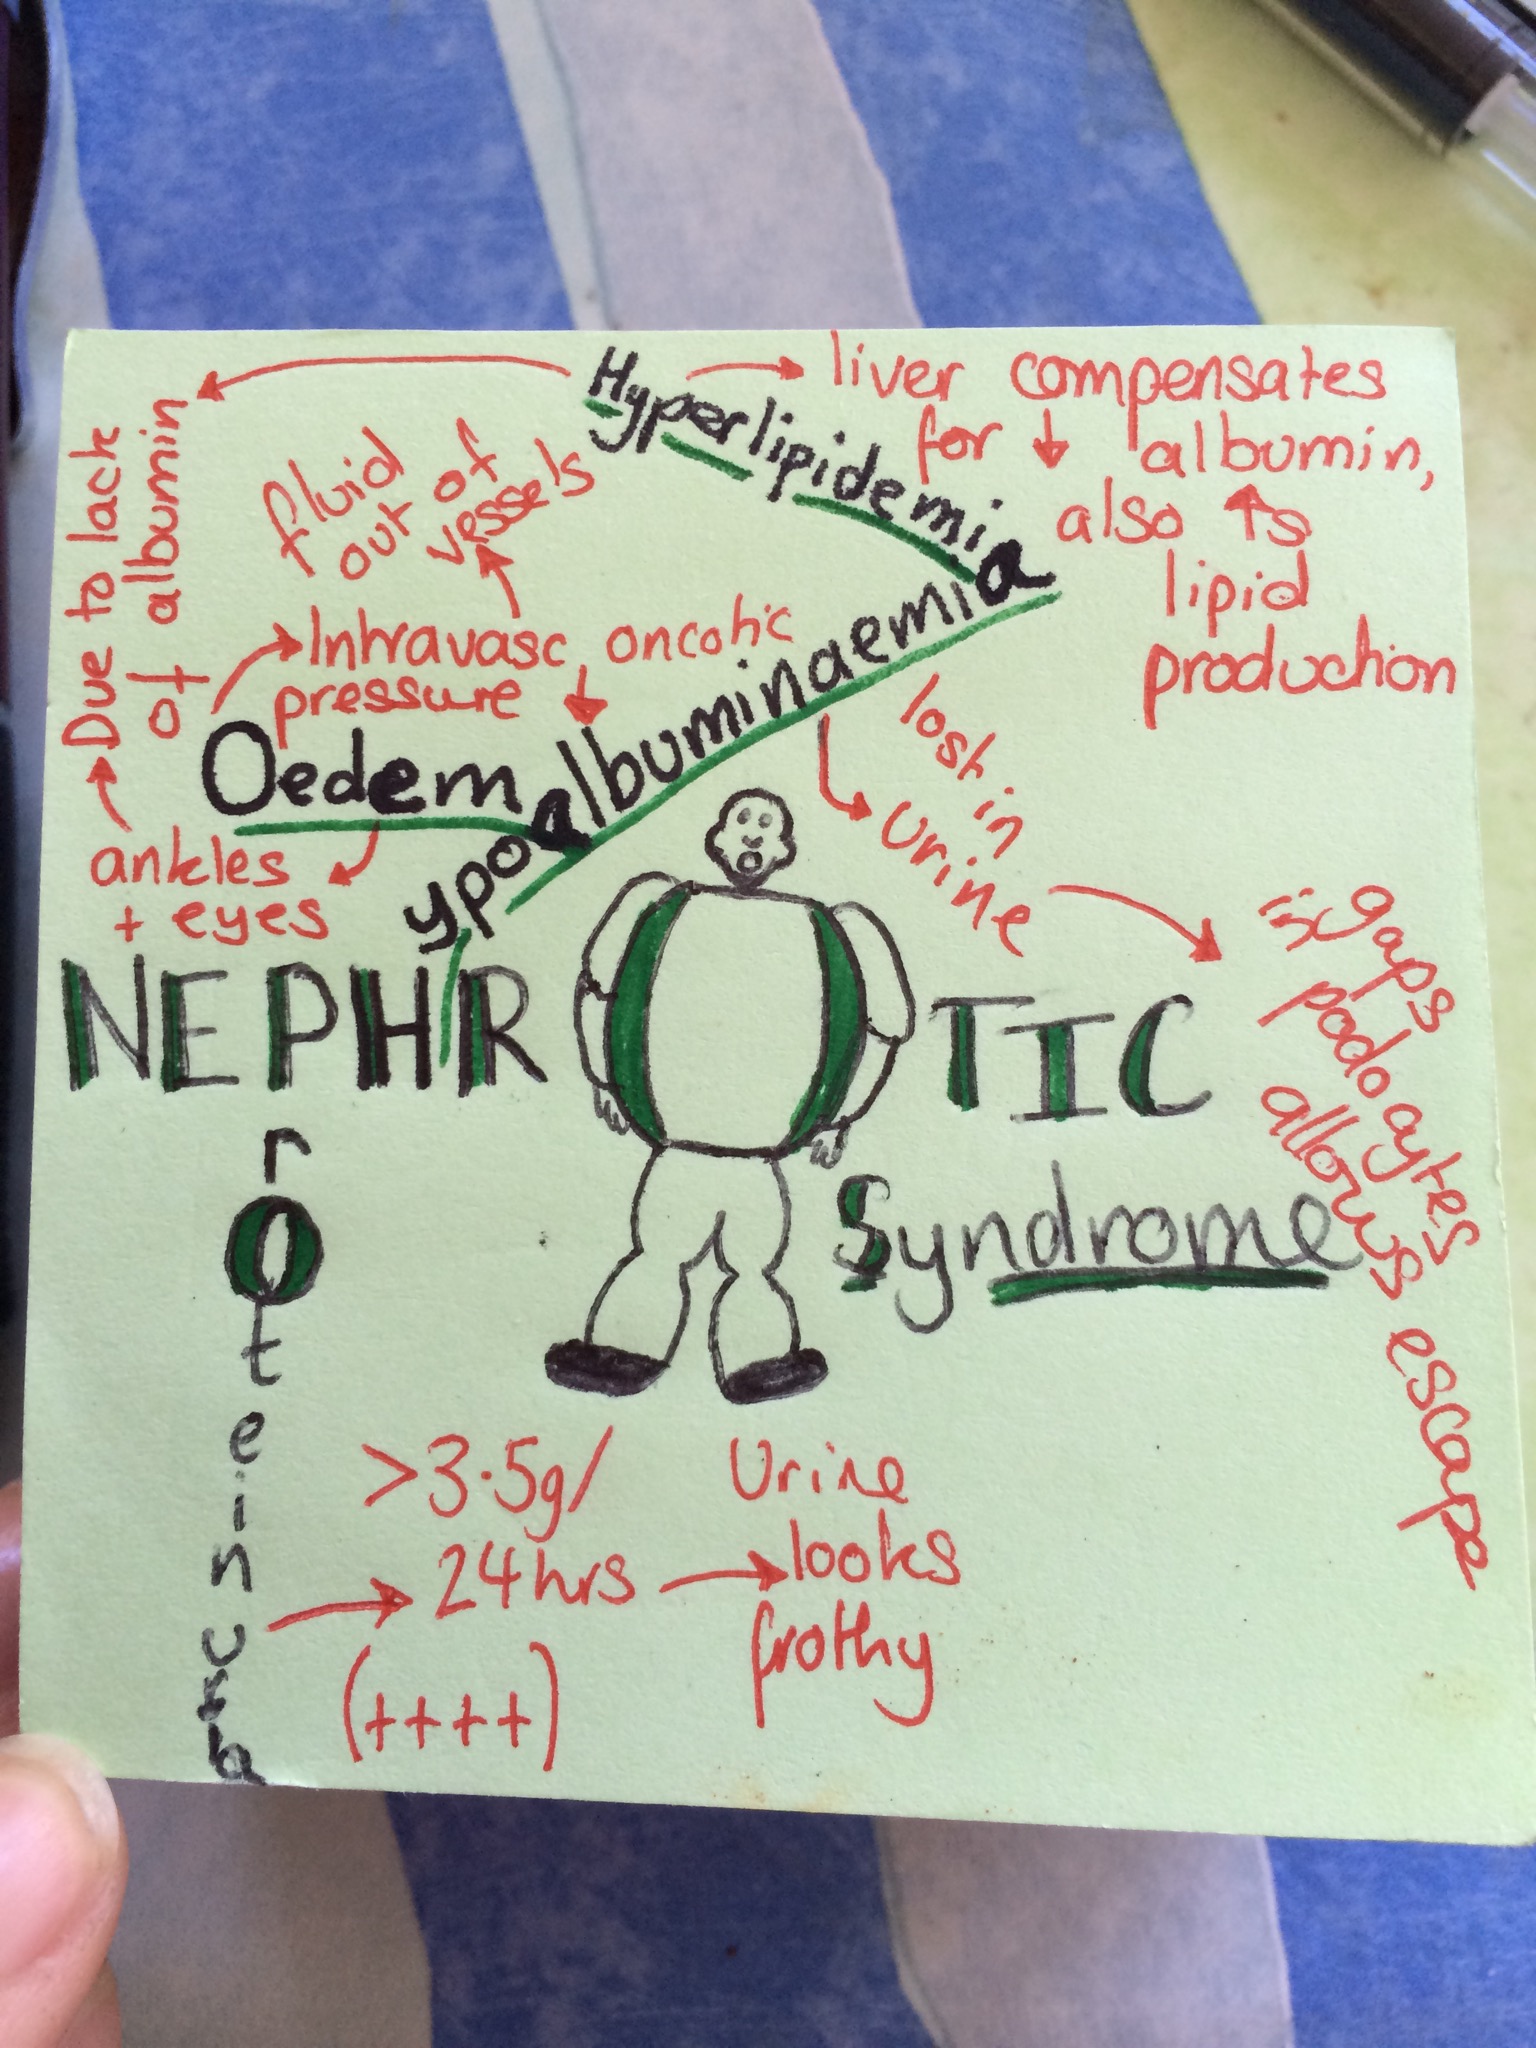 Hyperlipidemia
→ liver compensates
for ↓ albumin,
also ↑s
lipid
production
Due to lack
of albumin
fluid
out of
vessels
Intravasc oncotic
pressure ↓
Oedema
ankles
+ eyes
ypoalbuminaemia
lost in
Urine
gaps
in podocytes
allows escape
NEPHROTIC
Syndrome
roteinuria
>3.5g/
24hrs
(++++)
Urine
looks
frothy